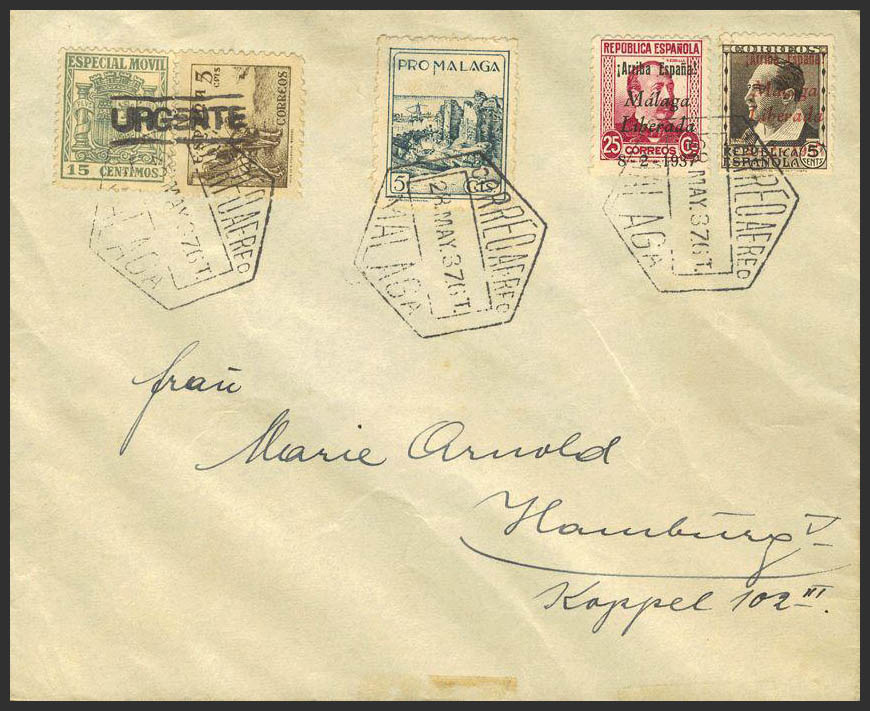 ESPECIAL MOVIL
15 CENTIMOS
URGENTE
ESPAÑA 5 CTS
CORREOS
PRO MALAGA
5 Cts
REPÚBLICA ESPAÑOLA
¡Arriba España!
Málaga
Liberada
25 CORREOS Cs
8-2-1937
CORREOS
¡Arriba España!
Málaga
Liberada
REPUBLICA
ESPAÑOLA
5 CENTS
CORREO AEREO
MAY.37 6T.
MALAGA
CORREO AEREO
28.MAY.37 6T.
MALAGA
CORREO AEREO
28 MAY.37 6T.
MALAGA
Frau
Marie Arnold
Hamburg V
Koppel 102 III.